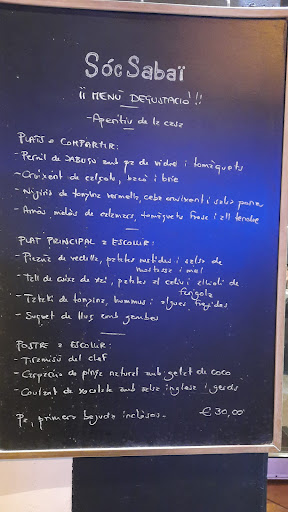 SócSabaï
¡¡ MENÚ DEGUSTACIÓ !!
- Aperitiu de la casa
PLATS A COMPARTIR:
- Pernil de JABUGO amb pa de vidre i tomàquets
- Cruixent de calçots, bacó i brie
- Nigiris de tonyina vermella, ceba cruixent i salsa ponzu
- Arròs melós de calamars, tomàquets frescs i all tendre
PLAT PRINCIPAL A ESCOLLIR:
- de vedella, patates rostides i salsa de
mostassa i mel
- Tall de cuixa de xai, patates al caliu i allioli de
farigola
- Tataki de tonyina, hummus i algues fregides
- Suquet de lluç amb gambes
POSTRE A ESCOLLIR:
- Tiramisú del chef
- Carpaccio de pinya natural amb gelat de coco
- Coulant de xocolata amb salsa inglesa i gerds
Pa, primera beguda inclosos.- €30,00